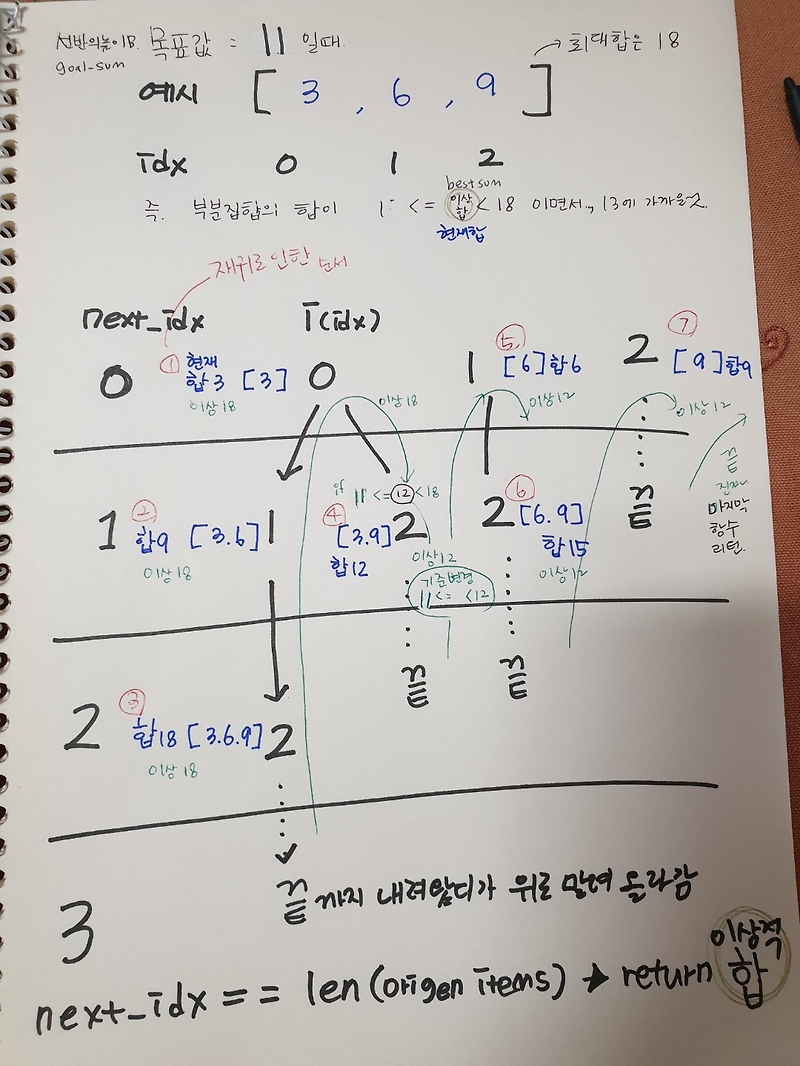 선반의높이B. 목표값 = 11 일때.
goal-sum
최대합은 18
예시 [ 3 , 6 , 9 ]
idx 0 1 2
best sum
즉. 부분집합의 합이 <= 이상합 < 18 이면서.., 13에 가까울 수.
현재합
재귀로 인한 순서
next_idx i(idx)
0 ① 현재 합3 [3] 0
이상18
이상18
1 ⑤ [6] 합6
이상12
2 ⑦ [9] 합9
이상12
끝
끝
진짜
마지막
함수
리턴.
1 ② 합9 [3.6] 1
이상18
if 11 <= 12 < 18
④ [3.9] 2
합12
이상12
기준변경
11 <= <12
끝
2 ⑥ [6.9]
합15
이상12
끝
2 ③ 합18 [3.6.9] 2
이상18
끝까지 내려왔다가 위로 말려 올라감
3
next_idx == len(origen items) → return 이상적 합